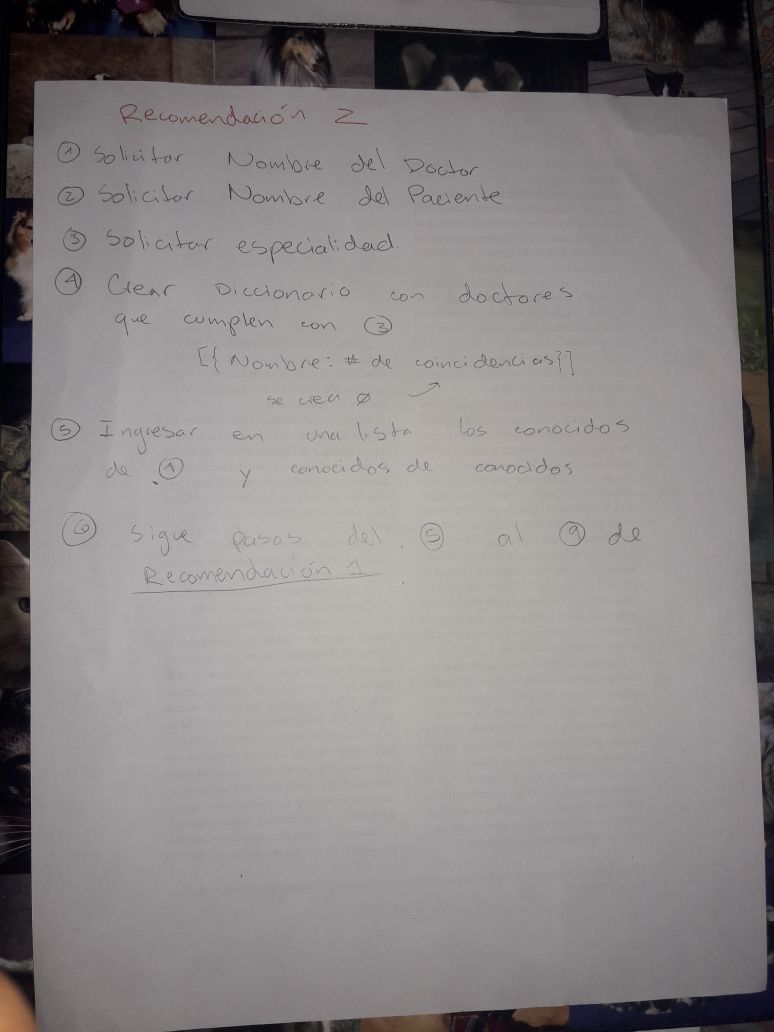 Recomendación 2
① Solicitar Nombre del Doctor
② Solicitar Nombre del Paciente
③ Solicitar especialidad.
④ Crear Diccionario con doctores
que cumplen con ③
[{Nombre: # de coincidencias}]
se crea ∅
⑤ Ingresar en una lista los conocidos
de ① y conocidos de conocidos
⑥ Sigue pasos del ⑤ al ⑨ de
Recomendación 1